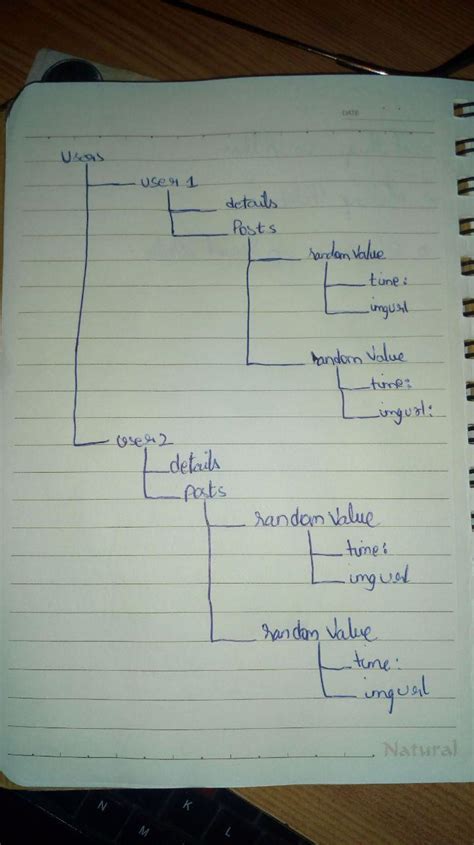 DATE
Users
user 1
details
Posts
random Value
time:
imgurl
random Value
time:
imgurl:
user 2
details
Posts
random Value
time:
imgurl
random Value
time:
imgurl
Natural
N K
M L